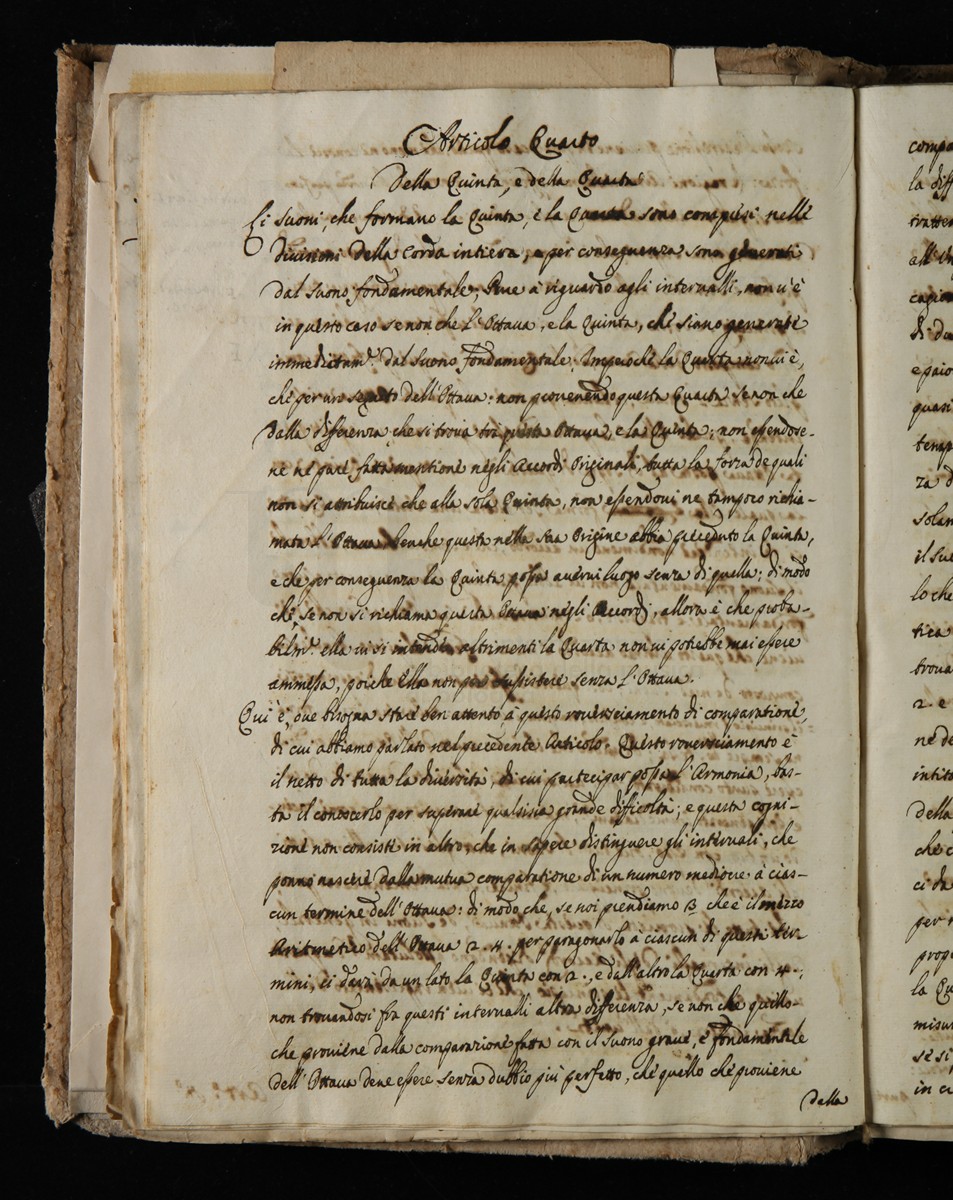 Articolo Quarto
Della Quinta, e della Quarta
Li Suoni, che formano la Quinta, e la Quarta sono compresi nelle
divisioni della Corda intiera, e per conseguenza sono generati
dal Suono fondamentale; Pure à riguardo agli intervalli, non v'è
in questo caso se non che l'Ottava, e la Quinta, che siano generate
immediatam.e dal Suono fondamentale. Imperoche la Quarta non vi è,
che per un seguito dell'Ottava: non provenendo questa Quarta se non che
dalla differenza, che si trova tra questa Ottava, e la Quinta; non essendose-
ne al pari fatta mentione negli Accordi Originali, tutta la forza de quali
non si attribuisce che alla sola Quinta, non essendovi ne tampoco richia-
mata l'Ottava benche questa nella sua Origine abbia preceduto la Quinta,
e che per conseguenza la Quinta possa avervi luogo senza di quella; di modo
che, se non si richiama questa Ottava negli Accordi, allora è che proba-
bilm.e ella vi si intende, altrimenti la Quarta non vi potrebbe mai essere
ammessa, poiche Ella non può sussistere senza l'Ottava.
Qui è, ove bisogna stare ben attento à questo roversciamento di comparatione,
di cui abbiamo parlato nel precedente Articolo. Questo roversciamento è
il netto di tutta la diversità, di cui partecipar possa l'Armonia, bas-
ta il conoscerlo per superare qualsisia grande difficoltà; e questa cogni-
zione non consiste in altro, che in sapere distinguere gli intervali, che
ponno nascere dalla mutua comparatione di un numero mediocre à cias-
cun termine dell'Ottava: di modo che, se noi prendiamo 3 che è il mezzo
Aritmetico dell'Ottava 2. 4. per paragonarlo à ciascun di questi ter-
mini, ci darà da un lato la Quinta con 2., e dall'altro la Quarta con 4.;
non trovandosi fra questi intervalli altra differenza, se non che quello-
che proviene dalla comparazione fatta con il Suono grave, e fondamentale
dell'Ottava deve essere senza dubbio più perfetto, che quello che proviene
della